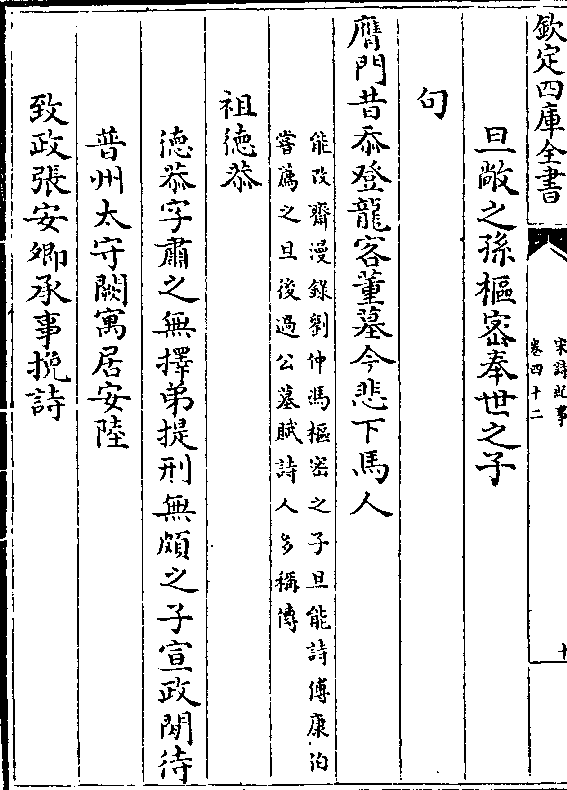 欽定四庫全書
宋詩紀事
卷四十二
十
旦敞之孫樞密奉世之子
句
膺門昔忝登龍客董墓今悲下馬人
能改齋漫錄劉仲馮樞密之子旦能詩傅康泊
嘗薦之旦後過公墓賦詩人多稱傳
祖德恭
德恭字肅之無擇弟提刑無頗之子宣政閒待
普州太守闕寓居安陸
致政張安卿承事挽詩